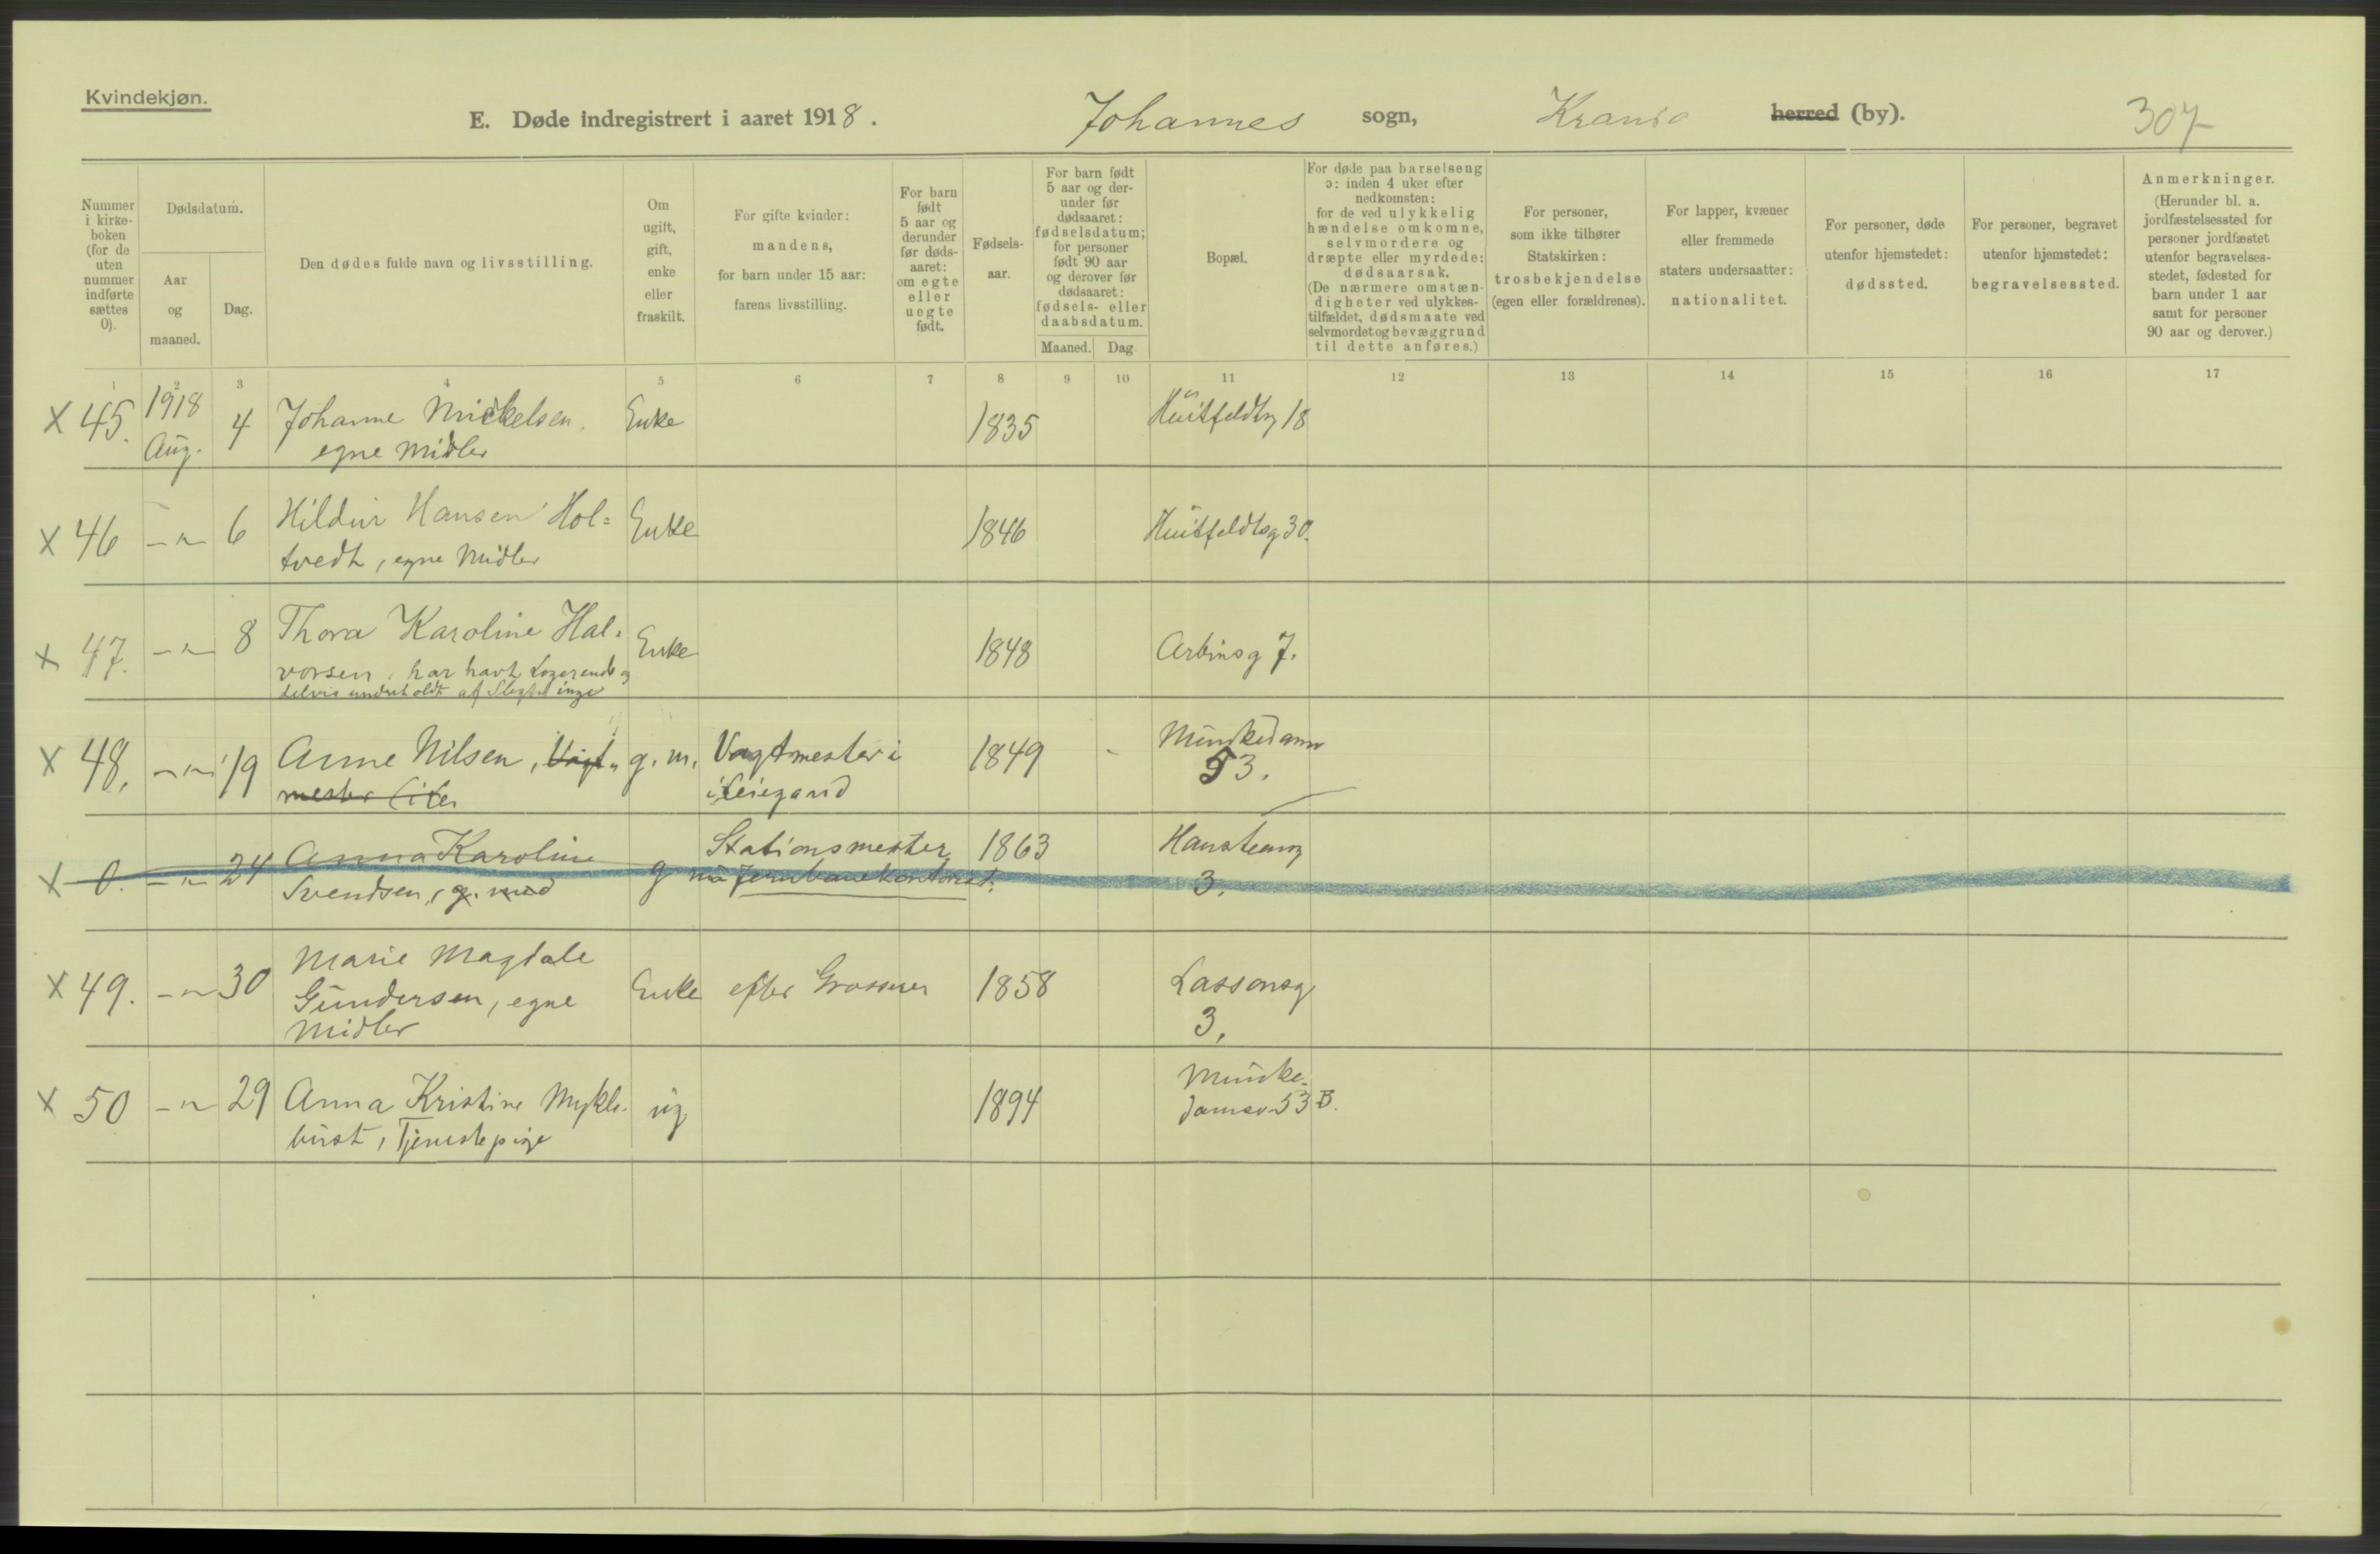 Kvindekjøn.
E. Døde indregistrert i aaret 1918. Johannes sogn, Krania herred (by). 307
Nummer
i kirke-
boken
(for de
uten
nummer
indførte
sættes
0).
Dødsdatum.
Aar
og
maaned.
Dag.
Den dødes fulde navn og livsstilling.
Om
ugift,
gift,
enke
eller
fraskilt.
For gifte kvinder:
mandens,
for barn under 15 aar:
farens livsstilling.
For barn
født
5 aar og
derunder
før døds-
aaret:
om egte
eller
uegte
født.
Fødsels-
aar.
For barn født
5 aar og der-
under før
dødsaaret:
fødselsdatum;
for personer
født 90 aar
og derover før
dødsaaret:
fødsels- eller
daabsdatum.
Maaned. Dag
Bopæl.
For døde paa barselseng
ɔ: inden 4 uker efter
nedkomsten:
for de ved ulykkelig
hændelse omkomne,
selvmordere og
dræpte eller myrdede:
dødsaarsak.
(De nærmere omstæn-
digheter ved ulykkes-
tilfældet, dødsmaate ved
selvmordet og bevæggrund
til dette anføres.)
For personer,
som ikke tilhører
Statskirken:
trosbekjendelse
(egen eller forældrenes).
For lapper, kvæner
eller fremmede
staters undersaatter:
nationalitet.
For personer, døde
utenfor hjemstedet:
dødssted.
For personer, begravet
utenfor hjemstedet:
begravelsessted.
Anmerkninger.
(Herunder bl. a.
jordfæstelsessted for
personer jordfæstet
utenfor begravelses-
stedet, fødested for
barn under 1 aar
samt for personer
90 aar og derover.)
1 2 3 4 5 6 7 8 9 10 11 12 13 14 15 16 17
X 45. 1918 Aug. 4 Johanne Mickelsen. Enke 1835 Huitfeldtsg 18
egne Midler
X 46 -"- 6 Hildur Hansen Hol= Enke 1846 Huitfeldtsg 30.
tvedt, egne Midler
X 47. -"- 8 Thora Karoline Hal= Enke 1848 Arbinsg 7.
vorsen, har havt Logerende og
delvis underholdt af Slegtninge
X 48. -"- 19 Anne Nilsen, Vagt= g. m. Vagtmester i 1849 - Munkedamsv
mester i Lei i Leiegaard 53.
X 0. -"- 24 Anna Karoline g Stationsmester 1863 Hansteensg
Svendsen, g. med på Jernbanekontoret. 3.
X 49. -"- 30 Marie Magdale Enke efter Grosserer 1858 Lassonsg
Gundersen, egne 3.
Midler
X 50 -"- 29 Anna Kristine Mykle- ug 1894 Munke-
bust, Tjenestepige damsv. 53 B.